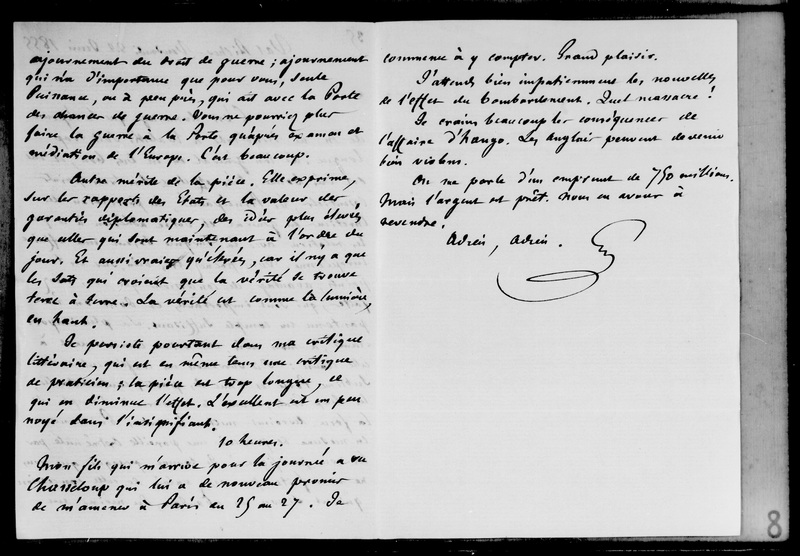 ajournement du droit de guerre ; ajournement
qui n'a d'importance que pour vous, seule
Puissance, ou à peu près, qui ait avec la Porte
des chances de guerre. Vous ne pourriez plus
faire la guerre à la Porte qu'après examen et
médiation de l'Europe. C'est beaucoup.
Autre mérite de la pièce. Elle exprime,
sur les rapports des Etats et la valeur des
garanties diplomatiques, des idées plus élevées
que celles qui sont maintenant à l'ordre du
jour. Et aussi vraies qu'élevées, car il n'y a que
les sots qui croient que la vérité se trouve
terre à terre. La vérité est comme la lumière,
en haut.
Je persiste pourtant dans ma critique
littéraire, qui est en même tems une critique
de praticien ; la pièce est trop longue, ce
qui en diminue l'effet. L'excellent est un peu
noyé dans l'insignifiant.
10 heures.
Mon fils qui m'arrive pour la journée a vu
Chasseloup qui lui a de nouveau promis
de m'amener à Paris du 25 au 27. Je
commence à y compter. Grand plaisir.
J'attends bien impatiemment les nouvelles
de l'effet du bombardement. Quel massacre !
Je crains beaucoup les conséquences de
l'affaire d'Hango. Les Anglais peuvent devenir
bien violens.
On me parle d'un emprunt de 750 millions.
Mais l'argent est prêt. Nous en avons à
revendre.
Adieu, Adieu.
8